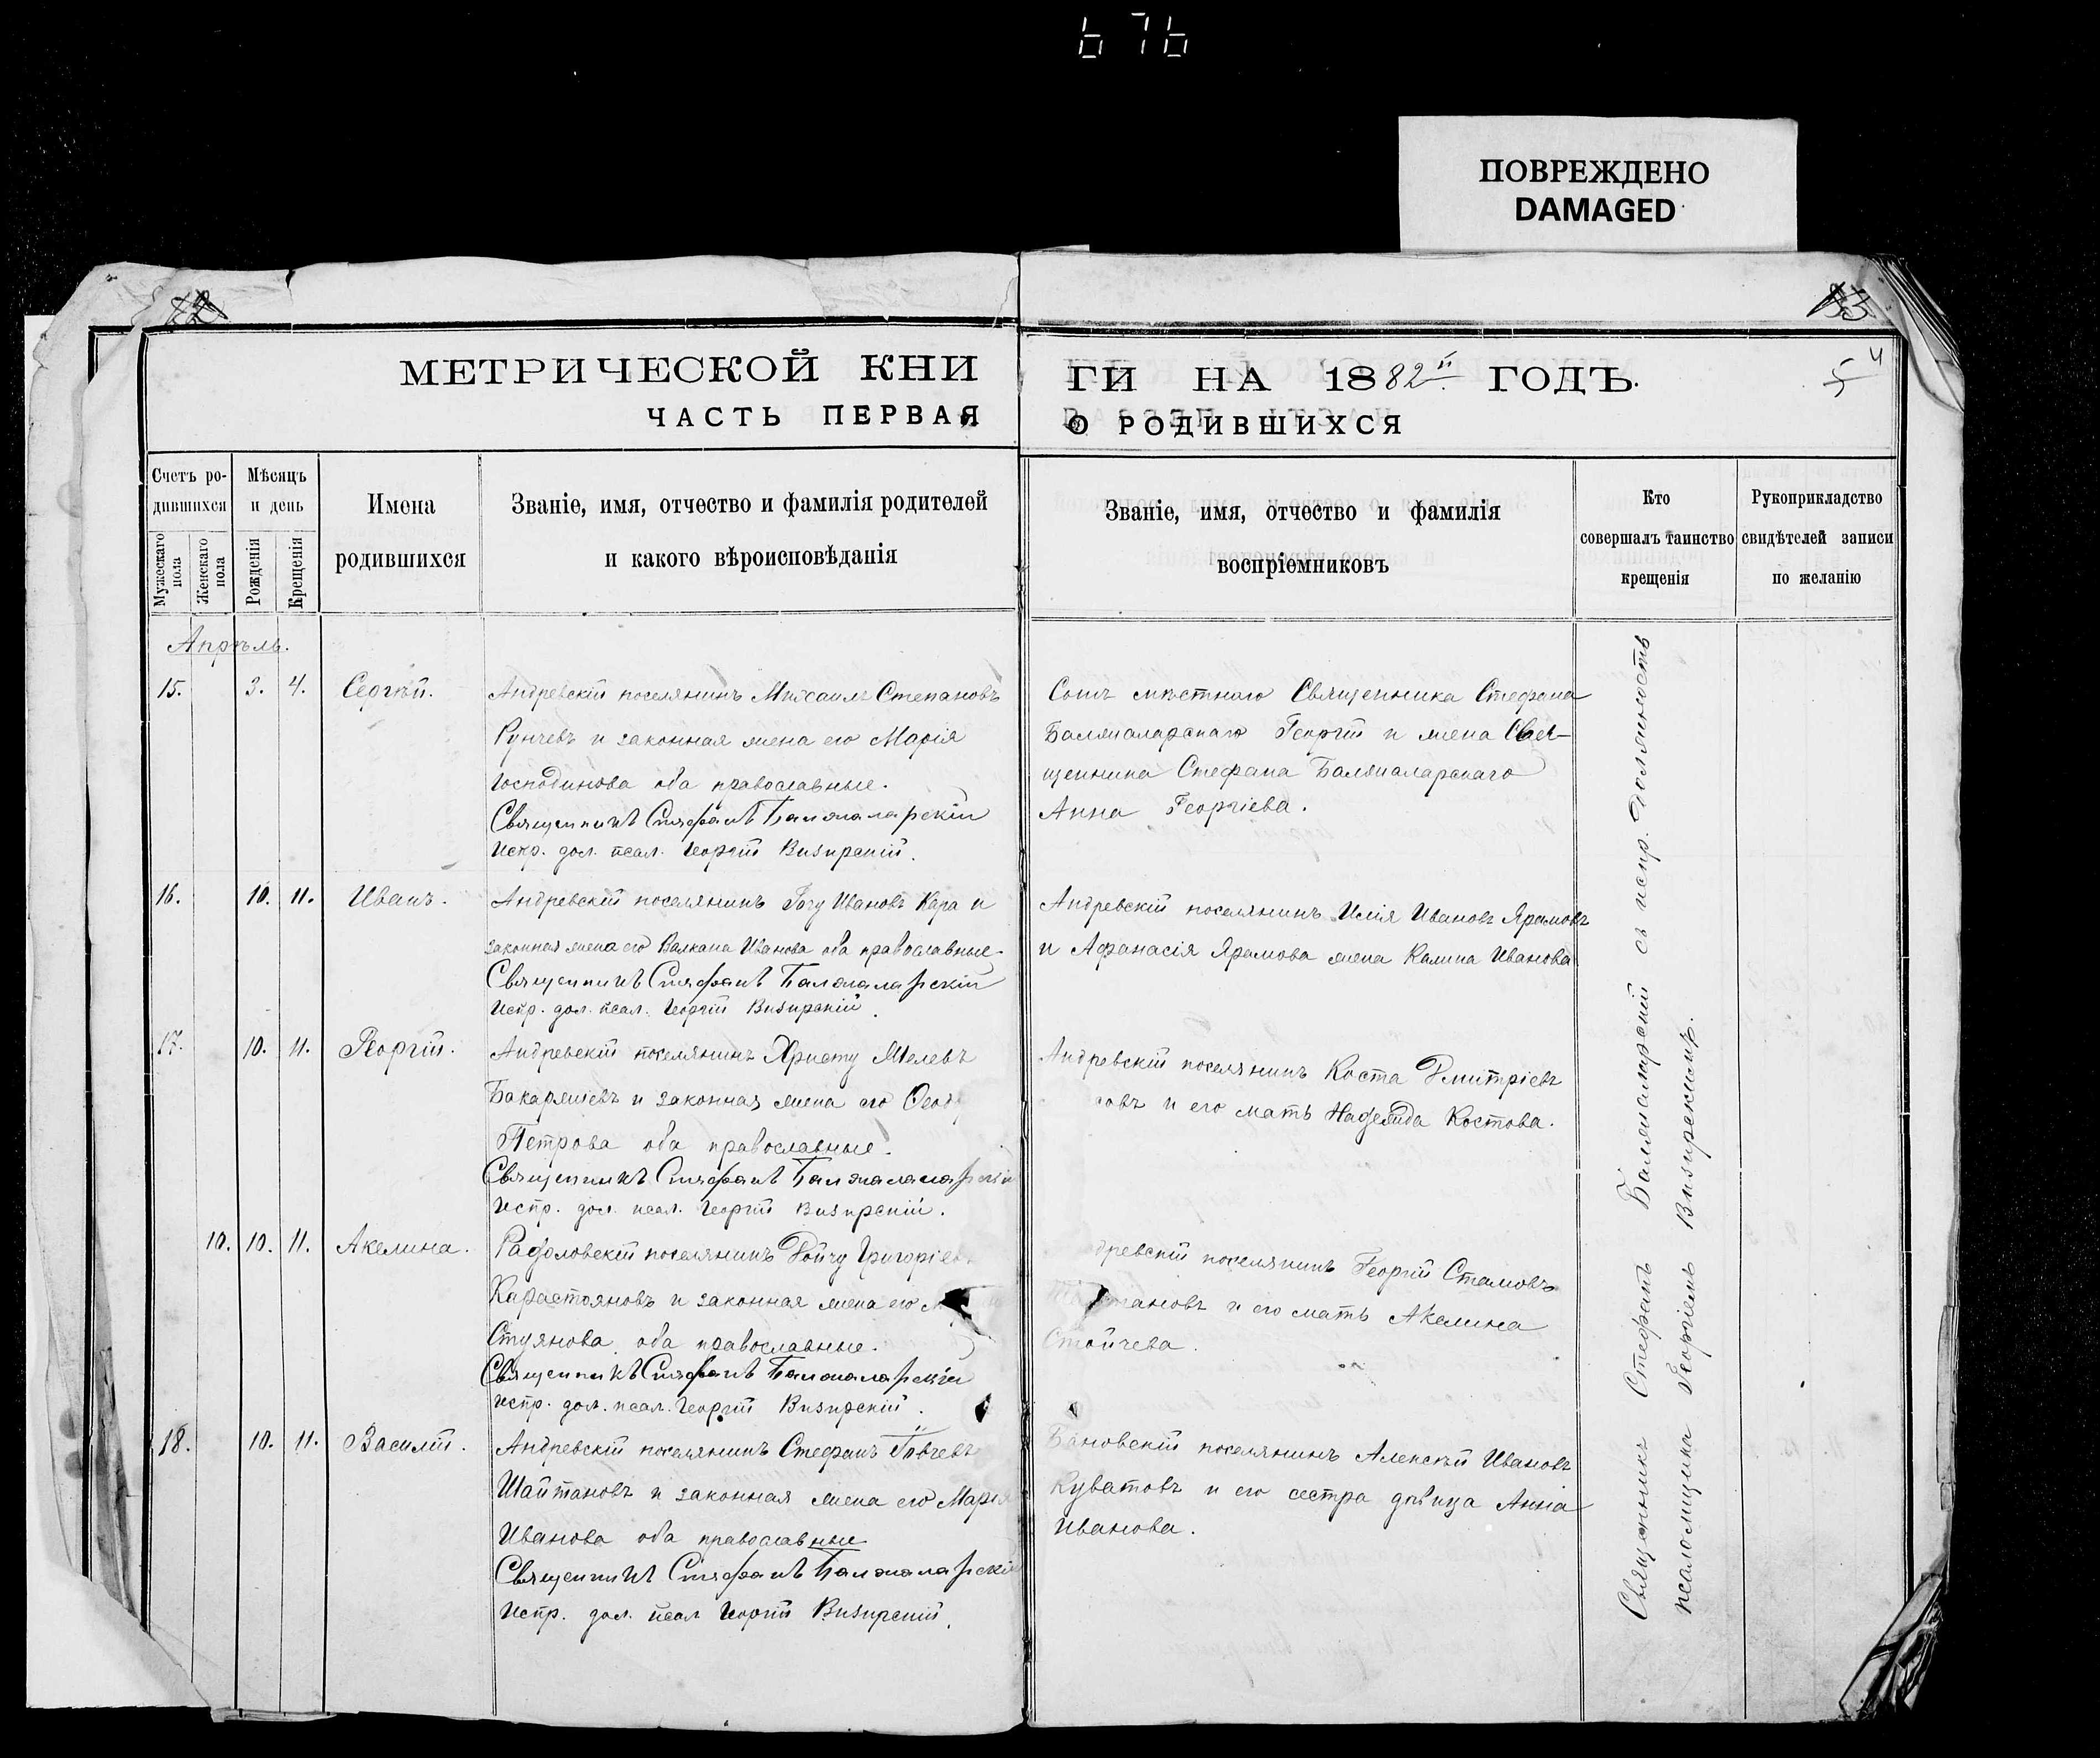 676
ПОВРЕЖДЕНО
DAMAGED
МЕТРИЧЕСКОЙ КНИ
ГИ НА 1882й ГОДЪ.
ЧАСТЬ ПЕРВАЯ
О РОДИВШИХСЯ
Счетъ ро-
дившихся
Мѣсяцъ
и день
Мужескаго
пола
Женскаго
пола
Рожденія
Крещенія
Имена
родившихся
Званіе, имя, отчество и фамилія родителей
и какого вѣроисповѣданія
Званіе, имя, отчество и фамилія
воспріемниковъ
Кто
совершалъ таинство
крещенія
Рукоприкладство
свидѣтелей записи
по желанію
Апрѣль.
15. 3. 4. Сергѣй.
Андревскій поселянинъ Михаилъ Степановъ
Рунчевъ и законная жена его Марія
Господинова оба православные.
Священникъ Стефанъ Балжаларскій
Испр. дол. псал. Георгій Визирскій.
Сынъ мѣстнаго Священника Стефана
Балжаларскаго Георгій и жена Свя-
щенника Стефана Балжаларскаго
Анна Георгіева.
16. 10. 11. Иванъ.
Андревскій поселянинъ Гочу Ивановъ Кара и
законная жена его Валкана Иванова оба православные.
Священникъ Стефанъ Балжаларскій
Испр. дол. псал. Георгій Визирскій.
Андревскій поселянинъ Илія Ивановъ Ярамовъ
и Афанасія Ярамова жена Калина Иванова
17. 10. 11. Георгій.
Андревскій поселянинъ Христу Желевъ
Бакаржіевъ и законная жена его
Петрова оба православные.
Священникъ Стефанъ Балжаларскій
Испр. дол. псал. Георгій Визирскій.
Андревскій поселянинъ Коста Дмитріевъ
и его мать Надежда Костова.
10. 10. 11. Акелина.
поселянинъ Дойчу Григоріев
Карастояновъ и законная жена его
Стоянова оба православные.
Священникъ Стефанъ Балжаларскій
Испр. дол. псал. Георгій Визирскій.
древскій поселянинъ Георгій Стамовъ
ановъ и его мать Акелина
Стойчева.
18. 10. 11. Василій.
Андревскій поселянинъ Стефанъ
Шайтановъ и законная жена его Марія
Иванова оба православные
Священникъ Стефанъ Балжаларскій
Испр. дол. псал. Георгій Визирскій.
Бановскій поселянинъ Алексѣй Ивановъ
Куватовъ и его сестра дѣвица Анна
Иванова.
Священникъ Стефанъ Балжаларскій съ испр. должность
псаломщика Георгіемъ Визирскимъ.